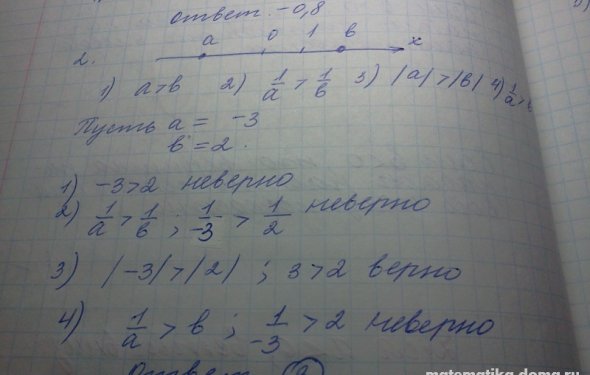 ответ. -0,8
a 0 1 в x
2.
1) a>в 2) 1/a > 1/в 3) |a|>|в| 4) 1/a >
Пусть a = -3
в = 2.
1) -3>2 неверно
2) 1/a > 1/в ; 1/-3 > 1/2 неверно
3) |-3|>|2| ; 3>2 верно
4) 1/a > в ; 1/-3 > 2 неверно
Ответ
matematika-doma.ru